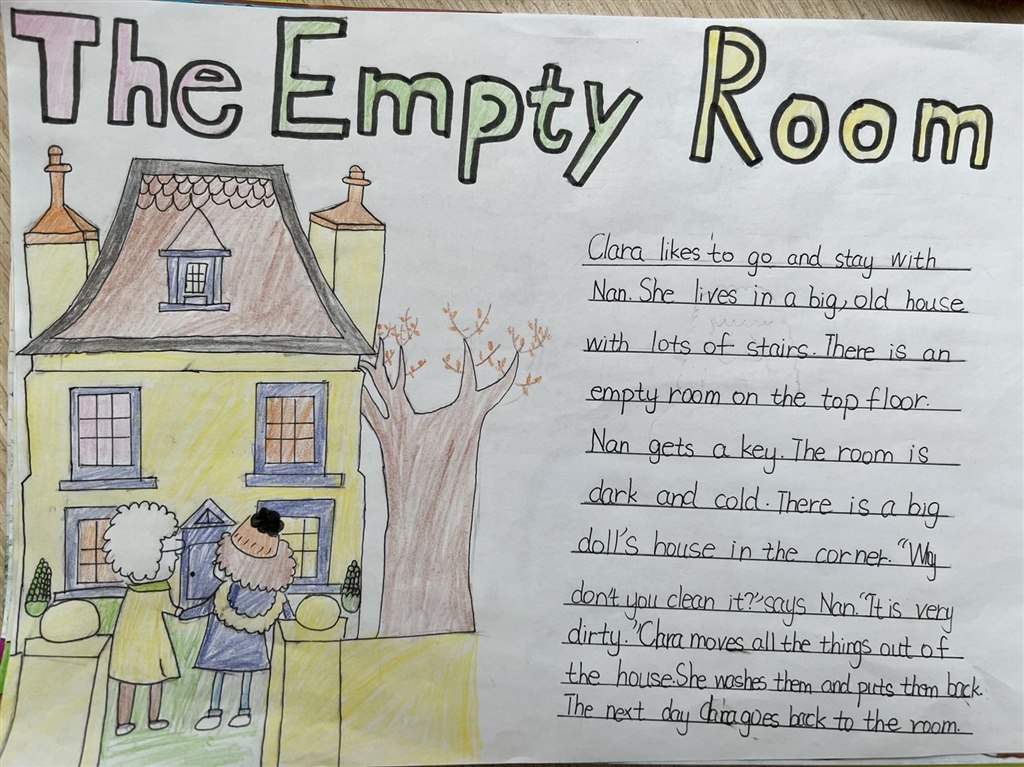 The Empty Room
Clara likes to go and stay with
Nan. She lives in a big, old house
with lots of stairs. There is an
empty room on the top floor.
Nan gets a key. The room is
dark and cold. There is a big
doll's house in the corner. "Why
don't you clean it?" says Nan. "It is very
dirty." Clara moves all the things out of
the house. She washes them and puts them back.
The next day Clara goes back to the room.